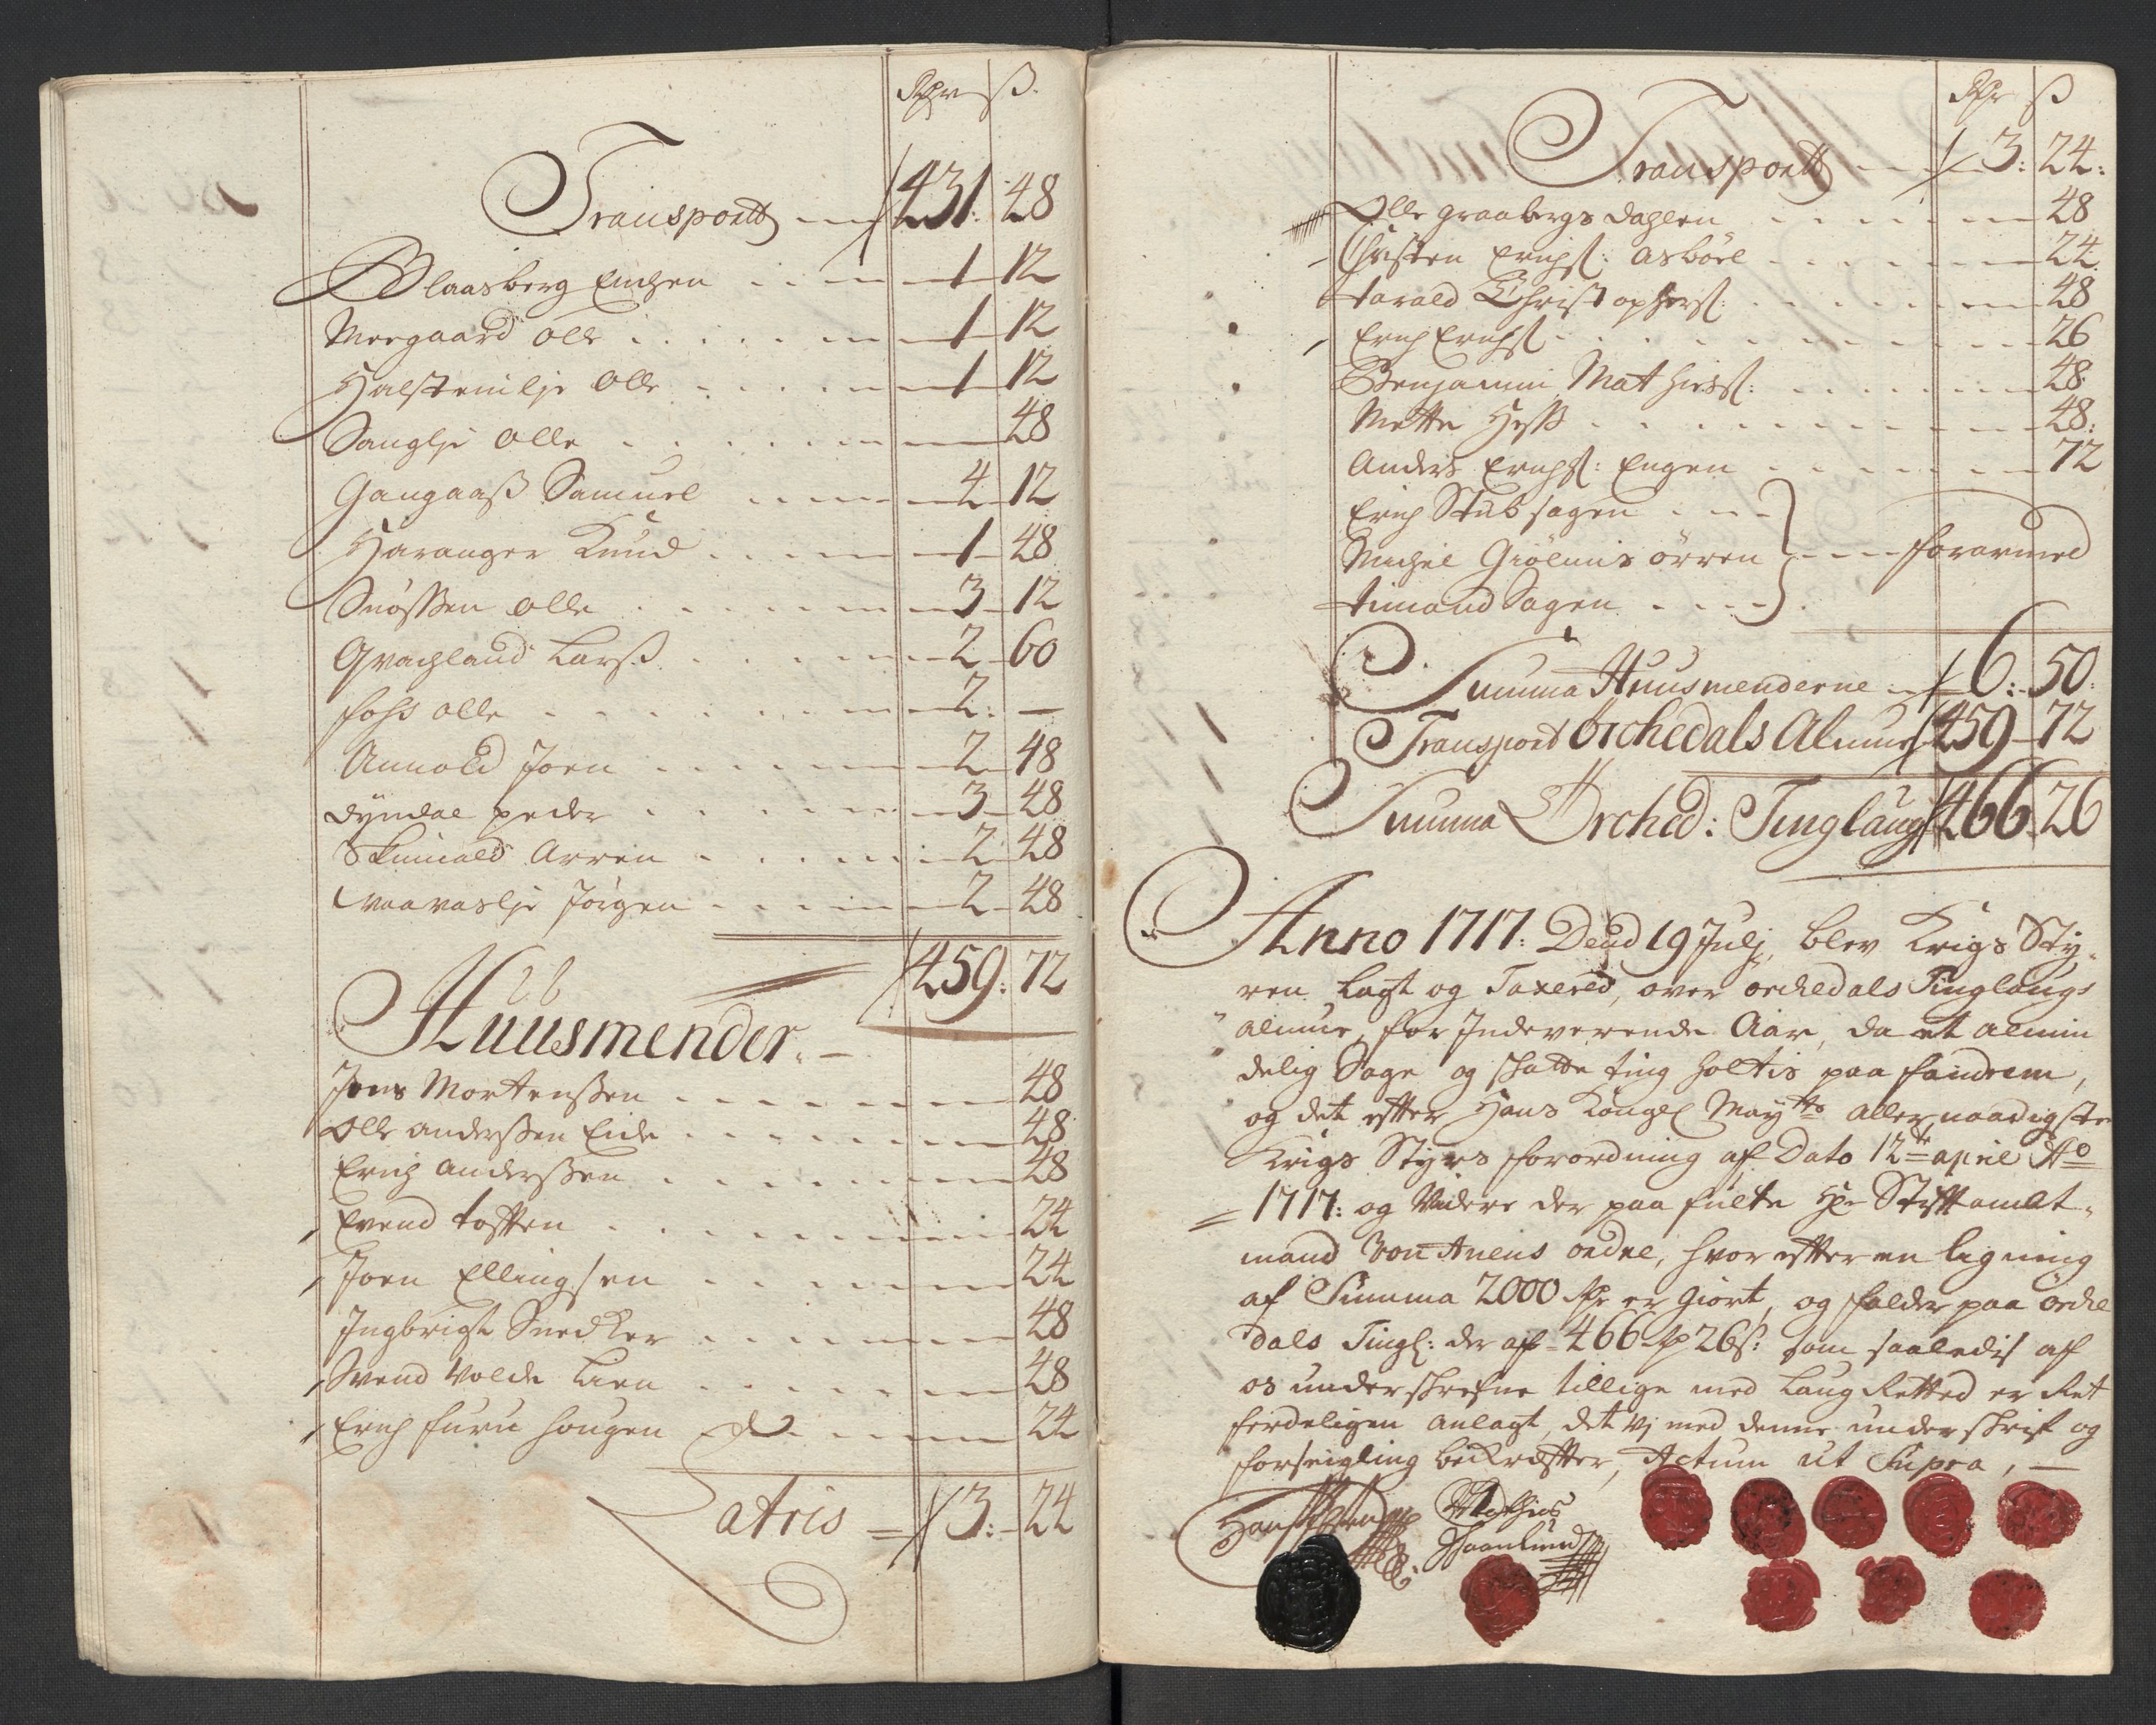 Rdr ß.
Transportt 431: 48
Blaasberg Engen 1 12
Moegaard Olle 1 12
Halstenlje Olle 1 12
Sauglje Olle 48
Gangaaß Samuel 4 12
Haranger Knud 1 48
Snößen Olle 3 12
Gvachland Larß 2 60
foss olle 2: —
Annold Joen 2 48
dyndal peder 3 48
Skumald Arren 2 48
vaavaslje Jörgen 2 48
459: 72
Huusmender.
Jens Mortenßen 48
Olle anderßen Eide 48
Erich anderßen 48
Evend toften 24
Joen Ellingsen 24
Ingbrigt Snedker 48
Svend Volde Lien 48
Erich furu hougen 24
Latris 3: 24
Rdr ß
Transportt 3: 24:
Olle graabergs dahlen 48
Christen Erichs: asböel 24
Harald Christophers: 48
Erich Erichs 26
Benjamin Mathiess: 48
Mette Hyß 48:
Anders Erichs: Engen 72
Erich Stubsagen
Michel Giölmis örren forarmed
Amand Sagen
Summa Huusmenderne 6: 50
Transport Orchedals Almue 459 72
Summa Orched: Tinglaug 466 26
Anno 1717: Dend 19 Julj, blev Krigs Sty-
ren lagt og Taxered, over orchedals Tinglaugs
almue, for Indeverende Aar, da et almin
delig Sage og skatte ting holtis paa fandrem,
og det efter Hans Kongel Maytts allernaadigste
Krigs Styrs forordning af Dato 12te april Ao
1717: og Videre der paa fulte Hr Stiftamt-
mand Von Anens ordre, hvor efter en ligning
af Summa 2000 Rdr er giort, og falder paa orche
dals Tingl: der af 466 Rdr 26 s: som saaledis af
os underskrefne tillige med Laug Retted er Ret
ferdeligen anlagt, det Vj med denne underskrift og
forseigling bekræfter, Actum ut Supra, —
Mathias